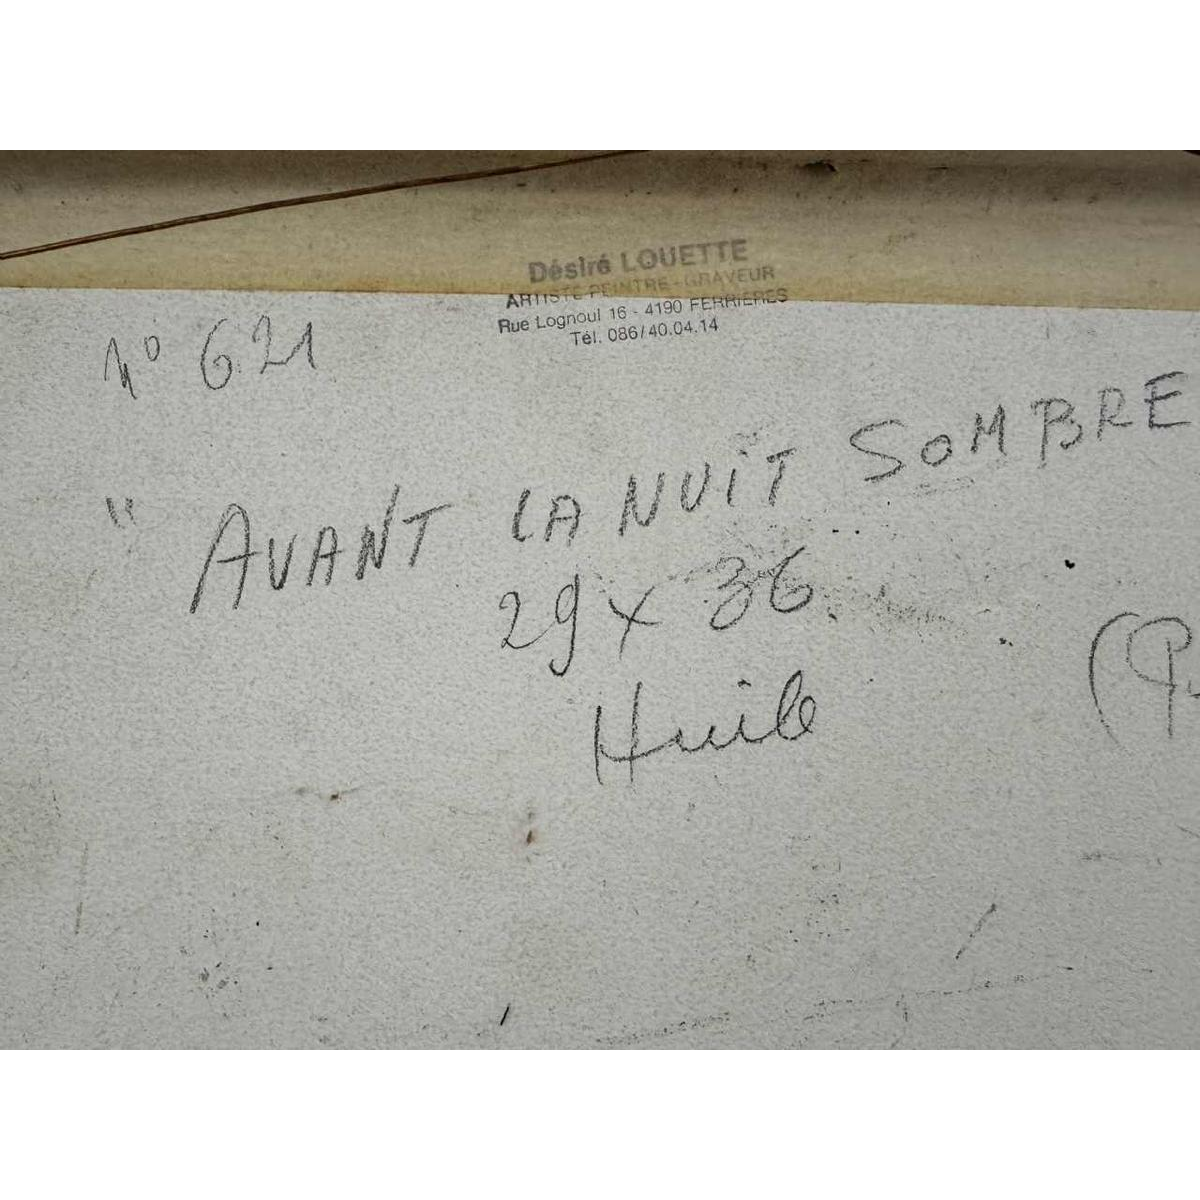 Désiré LOUETTE
ARTISTE PEINTRE - GRAVEUR
Rue Lognoul 16 - 4190 FERRIÈRES
Tél. 086/40.04.14
N° 621
" AVANT LA NUIT SOMBRE
29 x 36
Huile